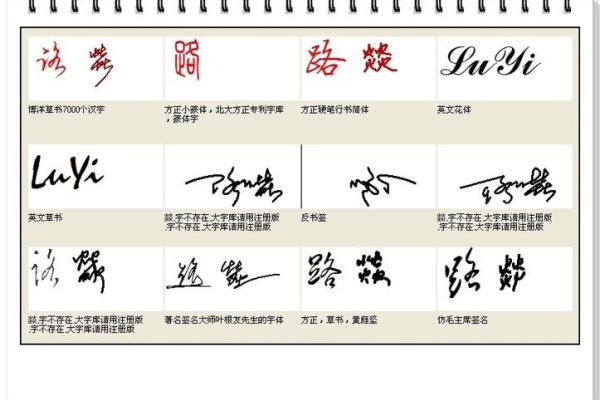 路 燚
路
路 燚
LuYi
博洋草书7000个汉字
方正小篆体，北大方正专利字库
，篆体字
方正硬笔行书简体
英文花体
LuYi
路燚
路燚
英文草书
燚.字不存在.大字库请用注册版
.字不存在.大字库请用注册版
反书签
燚.字不存在.大字库请用注册版
.字不存在.大字库请用注册版
路 燚
路 燚
路 燚
路 燚
燚.字不存在.大字库请用注册版
.字不存在.大字库请用注册版
著名签名大师叶根友先生的字体
方正，草书，黄庭坚
仿毛主席签名